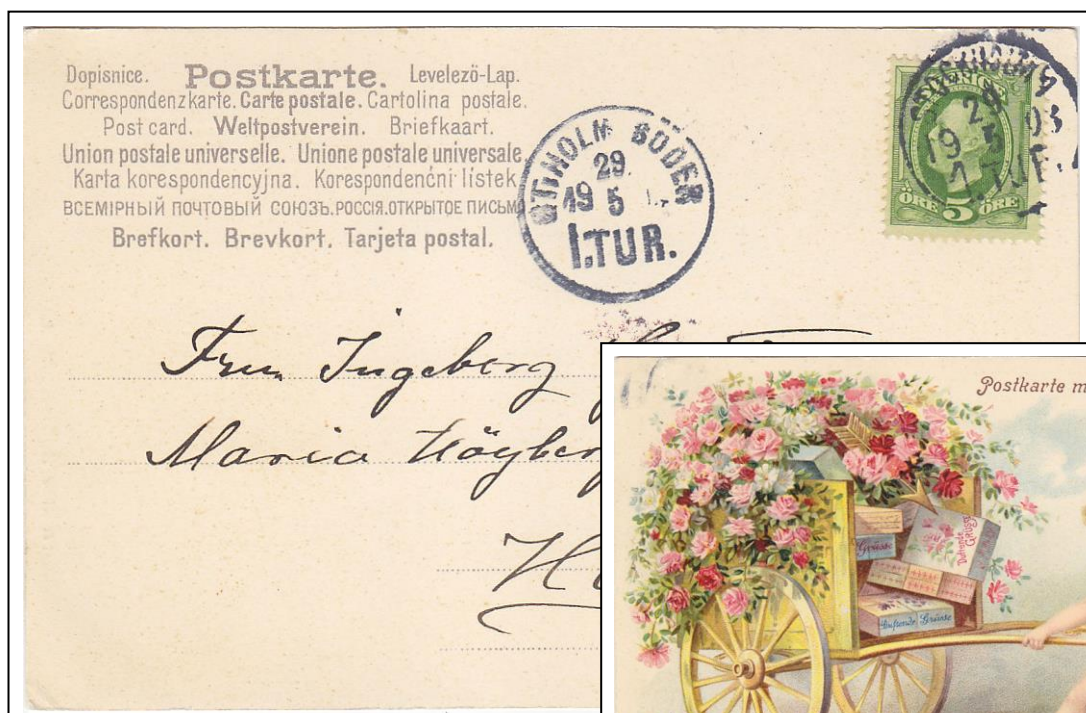 Dopisnice. Postkarte. Levelező-Lap.
Correspondenzkarte. Carte postale. Cartolina postale.
Post card. Weltpostverein. Briefkaart.
Union postale universelle. Unione postale universale
Karta korespondencyjna. Korespondenční lístek
ВСЕМІРНЫЙ ПОЧТОВЫЙ СОЮЗЪ. РОССІЯ. ОТКРЫТОЕ ПИСЬМО
Brefkort. Brevkort. Tarjeta postal.
SÖDER
29.
19 5
1.TUR.
SVERIGE
19 03
ÖRE 5 ÖRE
Ingeberg
Maria Högberg
Postkarte m
Duftende Grüsse
Grüsse
Duftende Grüsse